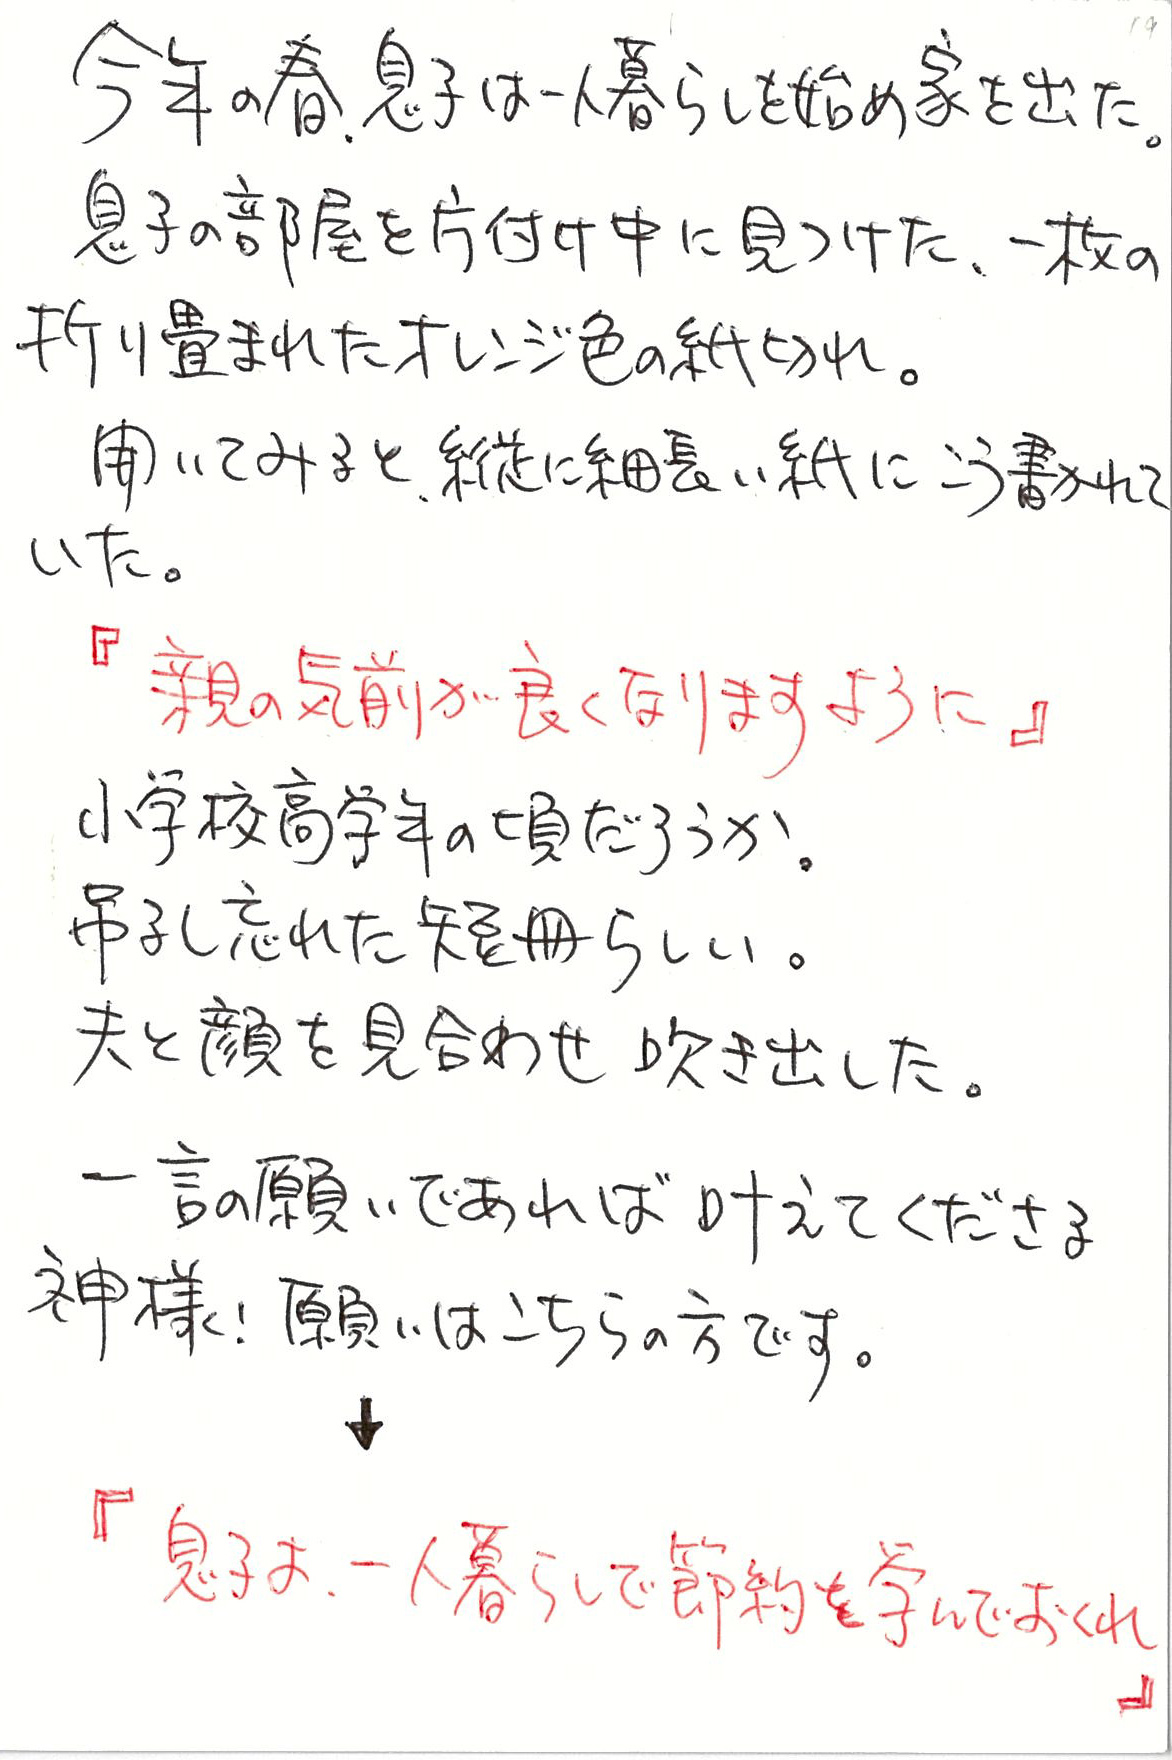 今年の春、息子は一人暮らしを始め家を出た。
息子の部屋を片付け中に見つけた、一枚の
折り畳まれたオレンジ色の紙切れ。
開いてみると、縦に細長い紙にこう書かれて
いた。
『親の気前が良くなりますように』
小学校高学年の頃だろうか。
吊るし忘れた短冊らしい。
夫と顔を見合わせ吹き出した。
一言の願いであれば叶えてくださる
神様！願いはこちらの方です。
↓
『息子よ、一人暮らしで節約を学んでおくれ
』